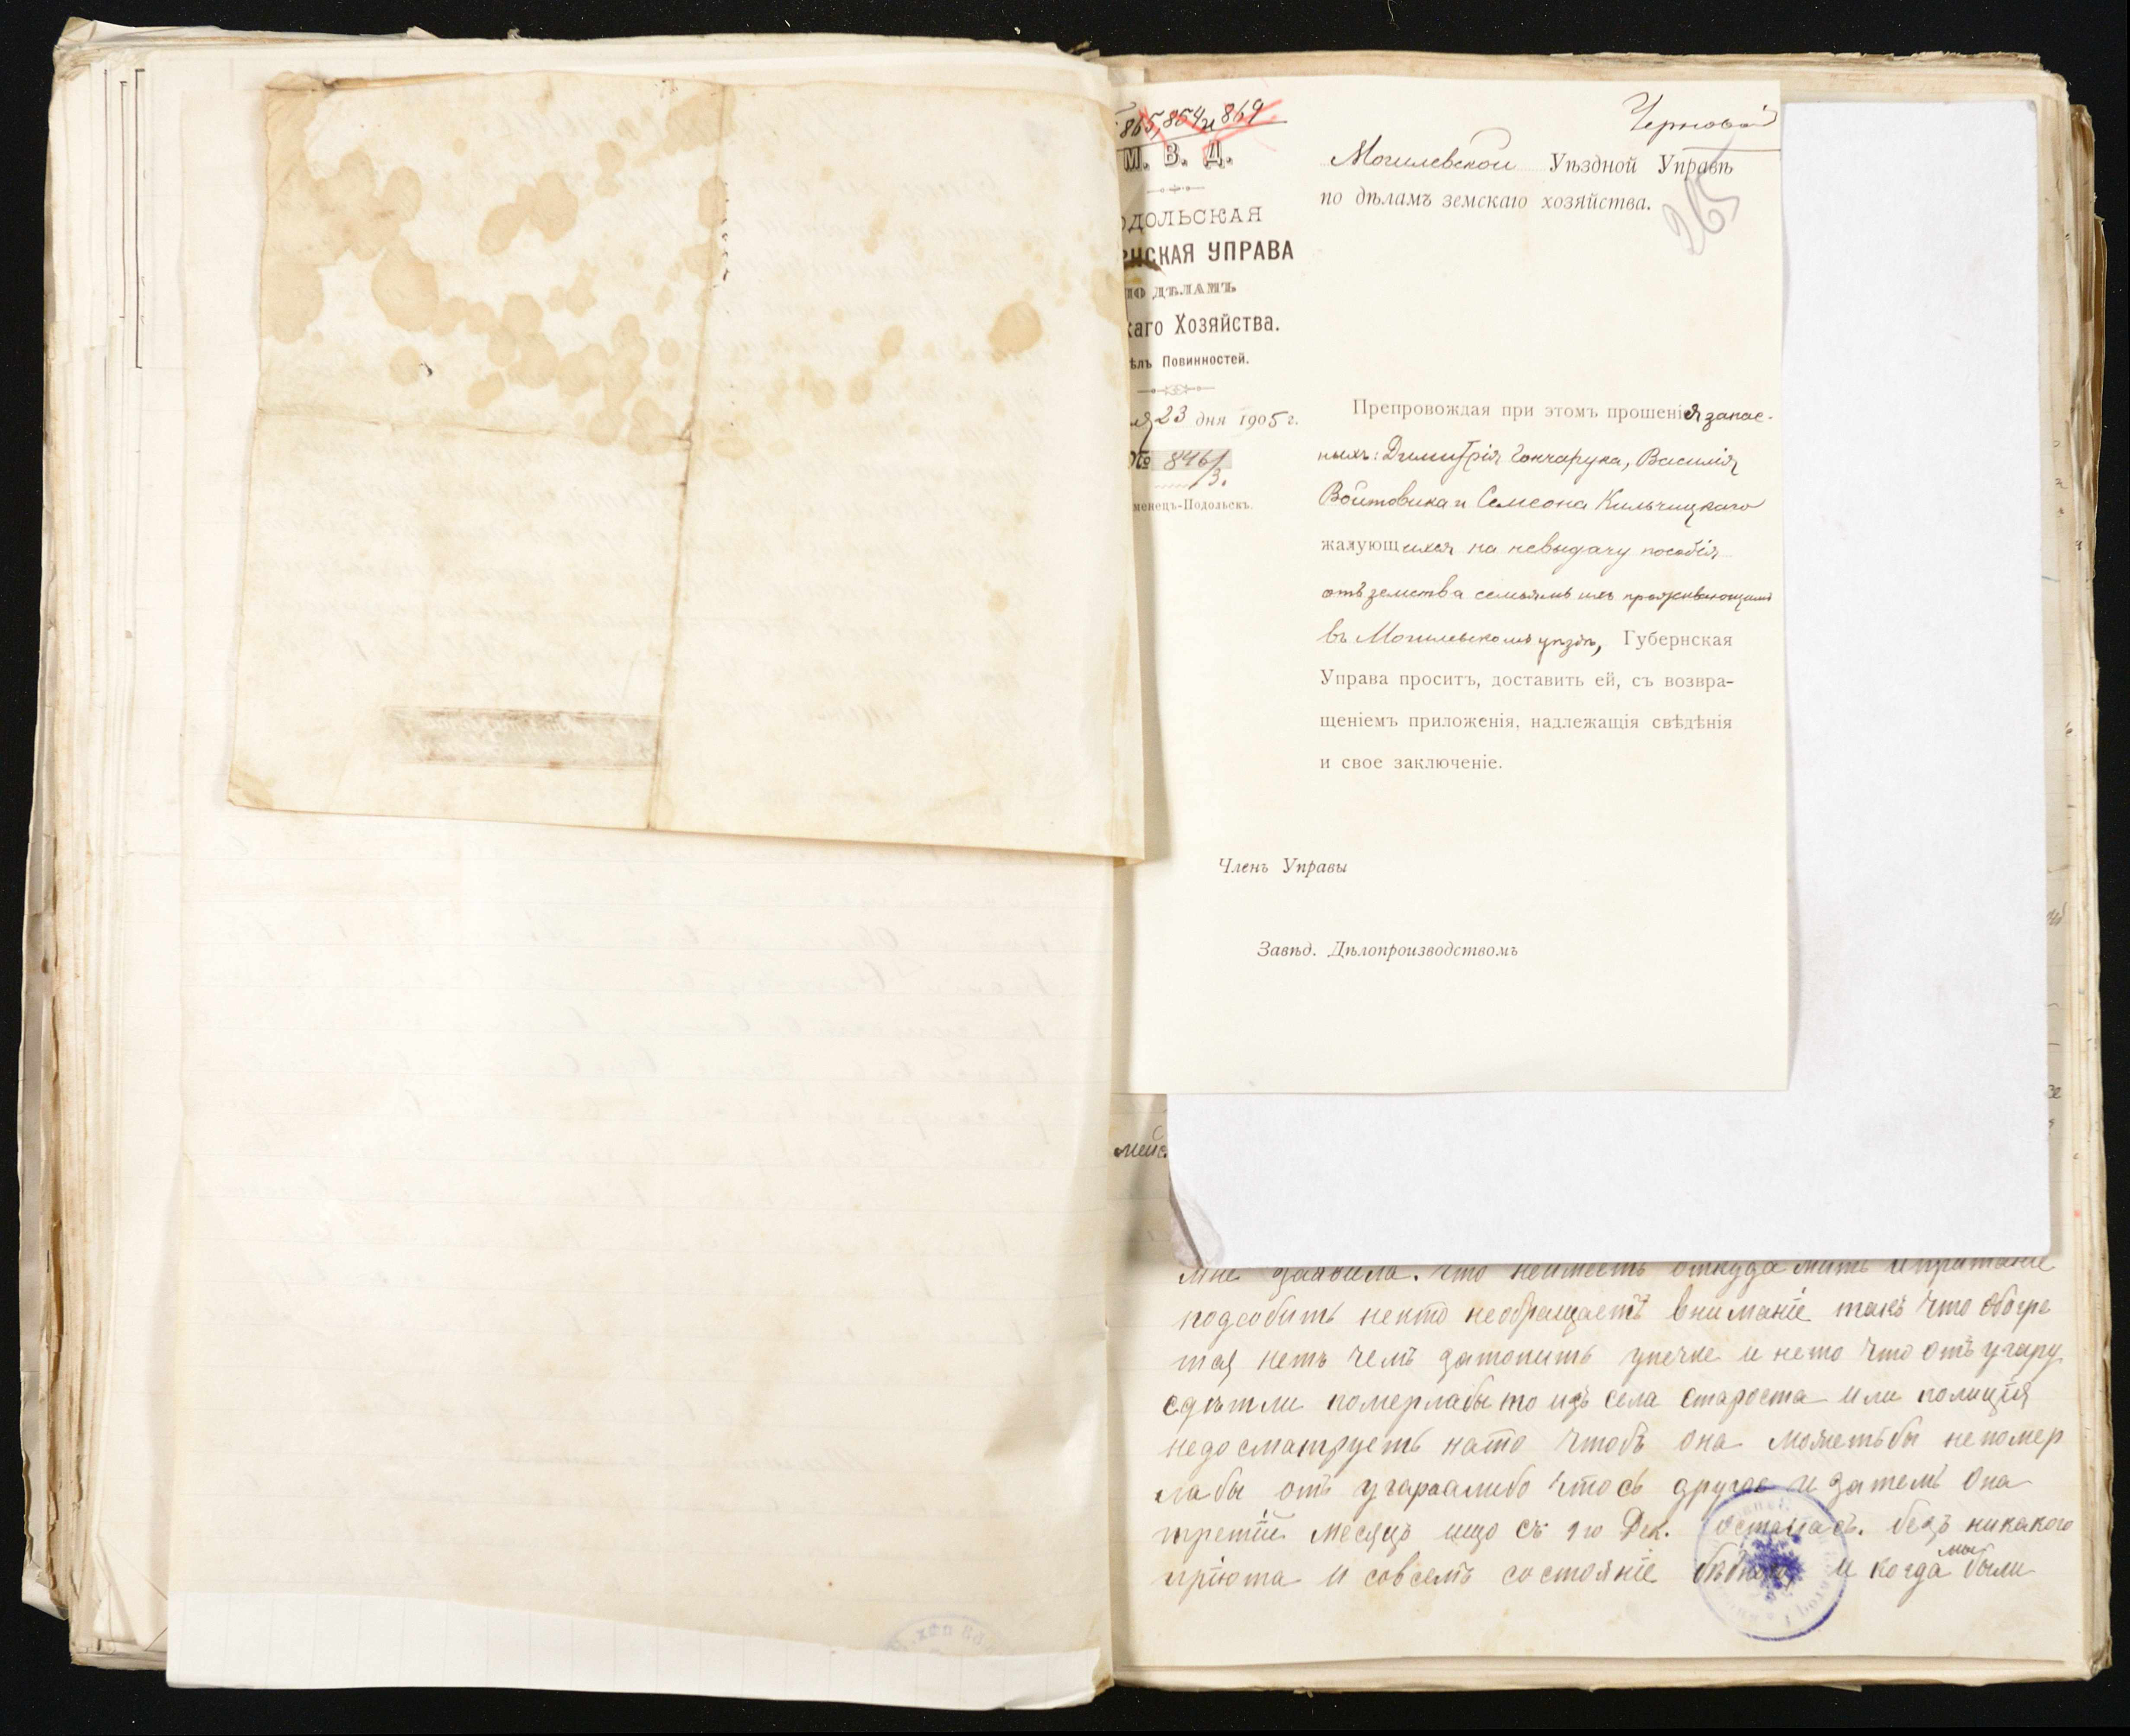 865, 854 и 869
М. В. Д.
ОДОЛЬСКАЯ
РНСКАЯ УПРАВА
ПО ДѢЛАМЪ
каго Хозяйства.
ѣлъ Повинностей.
я 23 дня 1905 г.
№ 8461/3.
менецъ-Подольскъ.
Черновой
Могилевской Уѣздной Управѣ
по дѣламъ земскаго хозяйства.
265
Препровождая при этомъ прошенія запас-
ныхъ: Димитрія Гончарука, Василія
Войтовика и Семеона Кильчицкаго
жалующихся на невыдачу пособія
отъ земства семьямъ ихъ проживающимъ
въ Могилевскомъ уѣздѣ, Губернская
Управа проситъ, доставить ей, съ возвра-
щеніемъ приложенія, надлежащія свѣдѣнія
и свое заключеніе.
Членъ Управы
Завѣд. Дѣлопроизводствомъ
мне заявила. что неимеетъ откуда жить
подсобить нехто необращаетъ вниманіе такъ что обогре
тся нетъ чемъ затопить упечке и нето что отъ угару
сдѣтми померлабы то изъ села староста или полиція
недосматруетъ нато чтобъ она можетъбы непомер
лабы отъ угара алибо чтось другое и затемъ Она
третій месяцъ ищо съ 1го Дек. осталась. безъ никакого
пріюта и совсемъ состояніе и когда мы были